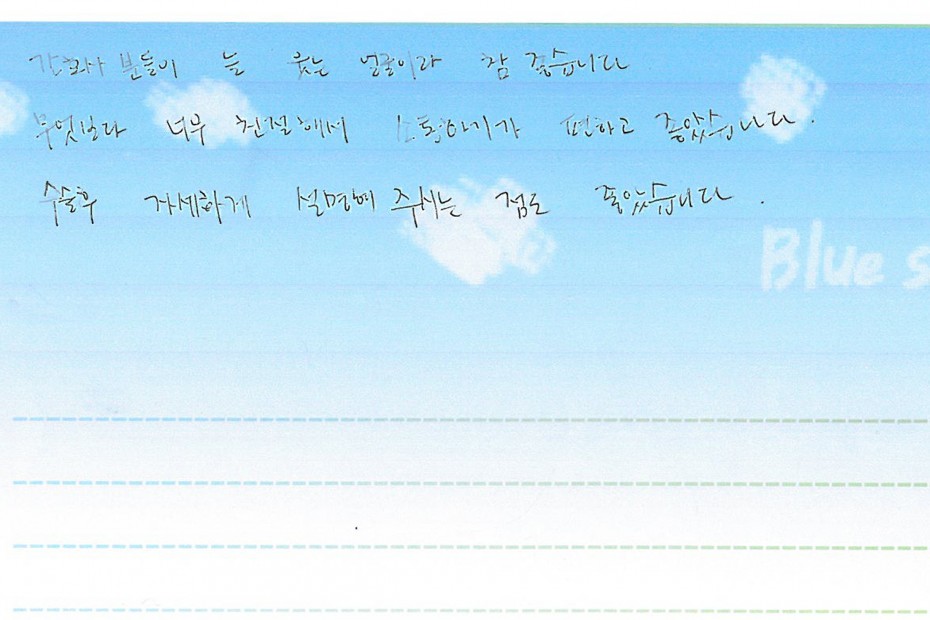 간호사 분들이 늘 웃는 얼굴이라 참 좋습니다
무엇보다 너무 친절해서 소통하기가 편하고 좋았습니다.
수술후 자세하게 설명해 주시는 점도 좋았습니다.
Blue s